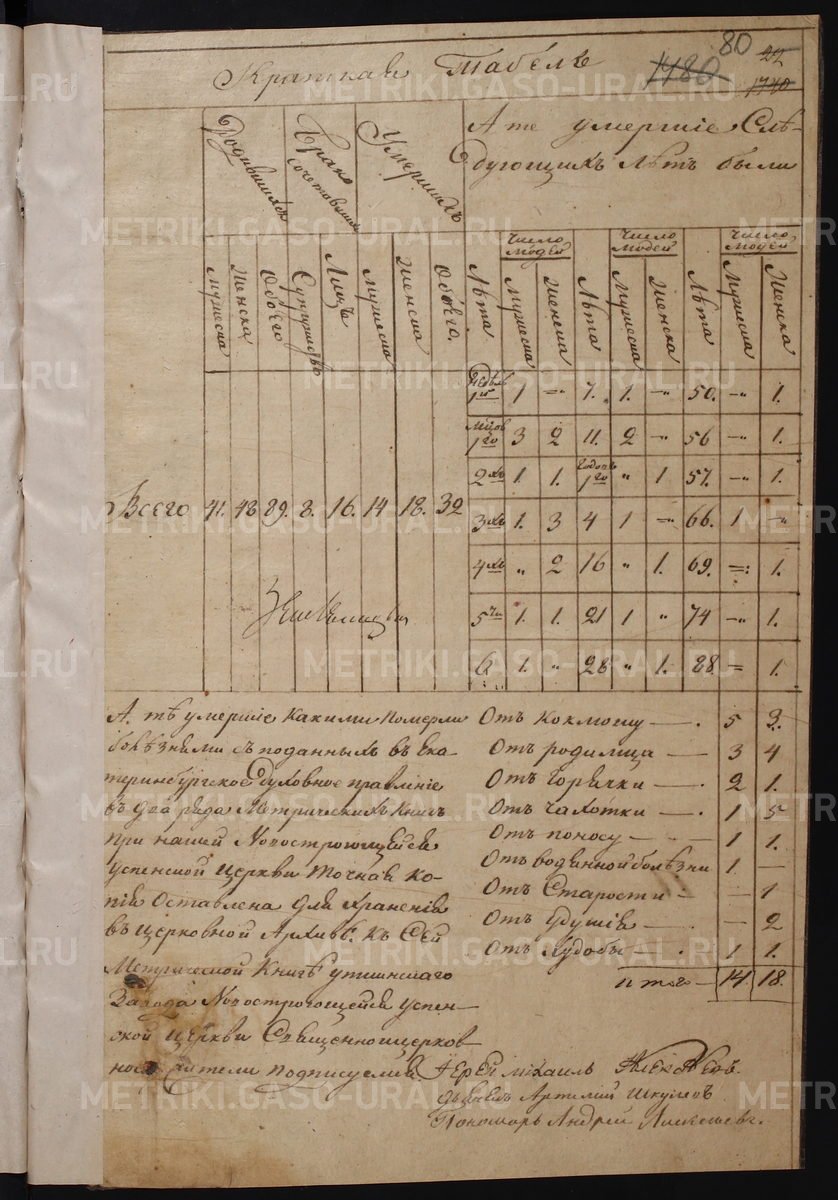 80
1480
Краткая Табель
А те умершіе Слѣ-
дующихъ Лѣтъ были
Родившихся
Брако
сочетавшихся
Умершихъ
Число людей
Число людей
Число людей
Мужеска
Женска
Обоего
Супружествъ
Лицъ
Мужеска
Женска
Обоего
Лѣта
Мужеска
Женска
Лѣта
Мужеска
Женска
Лѣта
Мужеска
Женска
1 - 7. 1. - 50. - 1.
1го 3 2 11. 2 - 56 - 1.
2хъ 1. 1. 1го " 1 57. - 1.
Всего 41. 48 89. 8. 16. 14 18. 32
3хъ 1. 3 4 1 - 66. 1 -
4хъ " 2 16 " 1. 69. - 1.
5ти 1. 1. 21 1 " 74 - 1.
6 1. " 28 " 1. 88. - 1.
А тѣ умершіе какими померли
болѣзньми съ поданныхъ въ Ека-
теринбургское Духовное правленіе
въ два ряда Метрическихъ Книгъ
при нашей Новостроющейся
Успенской Церкви точная ко-
пія Оставлена для храненія
въ церковной Архивѣ. Къ Сей
Метрической Книгѣ Уткинскаго
Завода Новостроющейся Успен-
ской Церкви Священноцерков-
нослужители подписуемся
Отъ кокмошу 5 3.
Отъ родимца 3 4
Отъ Горячки 2 1.
Отъ Чахотки 1 5
Отъ поносу 1 1.
Отъ водянной болѣзни 1 —
Отъ Старости — 1
Отъ Удушія — 2
Отъ Худобы 1 1.
итого 14. 18.
Іерей Михаилъ
Артемій
Пономарь Андрей
METRIKI.GASO-URAL.RU